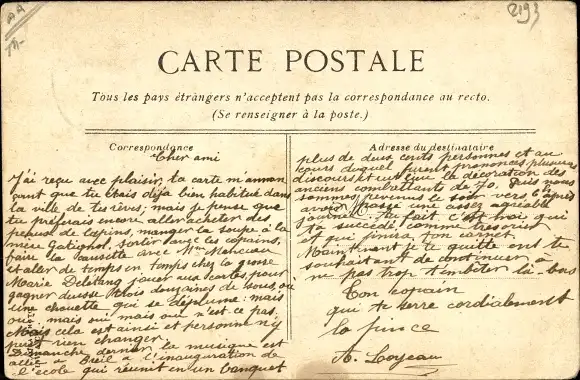 AA
M-
2193
CARTE POSTALE
Tous les pays étrangers n'acceptent pas la correspondance au recto.
(Se renseigner à la poste.)
Correspondance
Cher ami
J'ai reçu avec plaisir ta carte m'annon
çant que tu étais déjà bien habitué dans
la ville de tes rêves, mais je pense que
tu préférais encore, aller acheter des
peaux de lapins, manger la soupe à la
mère Gatignol, sortir avec les copains,
faire la causette avec Mme
et aller de temps en temps chez la grosse
Marie jouer aux cartes, pour
gagner deux ou trois douzaines de sous, ou
une chouette qui se déplume: mais
oui mais oui mais oui n'est ce pas.
Mais cela est ainsi et personne n'y
puit rien changer.
Dimanche dernier la musique est
allée à Breil à l'inauguration de
l'école qui réunit en un banquet
Adresse du destinataire
plus de deux cents personnes et au
cours duquel furent prononcés plusieurs
discours et eut lieu la décoration des
anciens combattants de 70. Puis nous
sommes revenus le soir vers 6h après
avoir passé une assez agréable
journée. Au fait c'est moi qui
t'a succédé comme trésorier
et qui
Maintenant je te quitte en te
souhaitant de continuer à
ne pas trop t'embêter là-bas
Ton copain
qui te serre cordialement
la pince
A. Loyeau